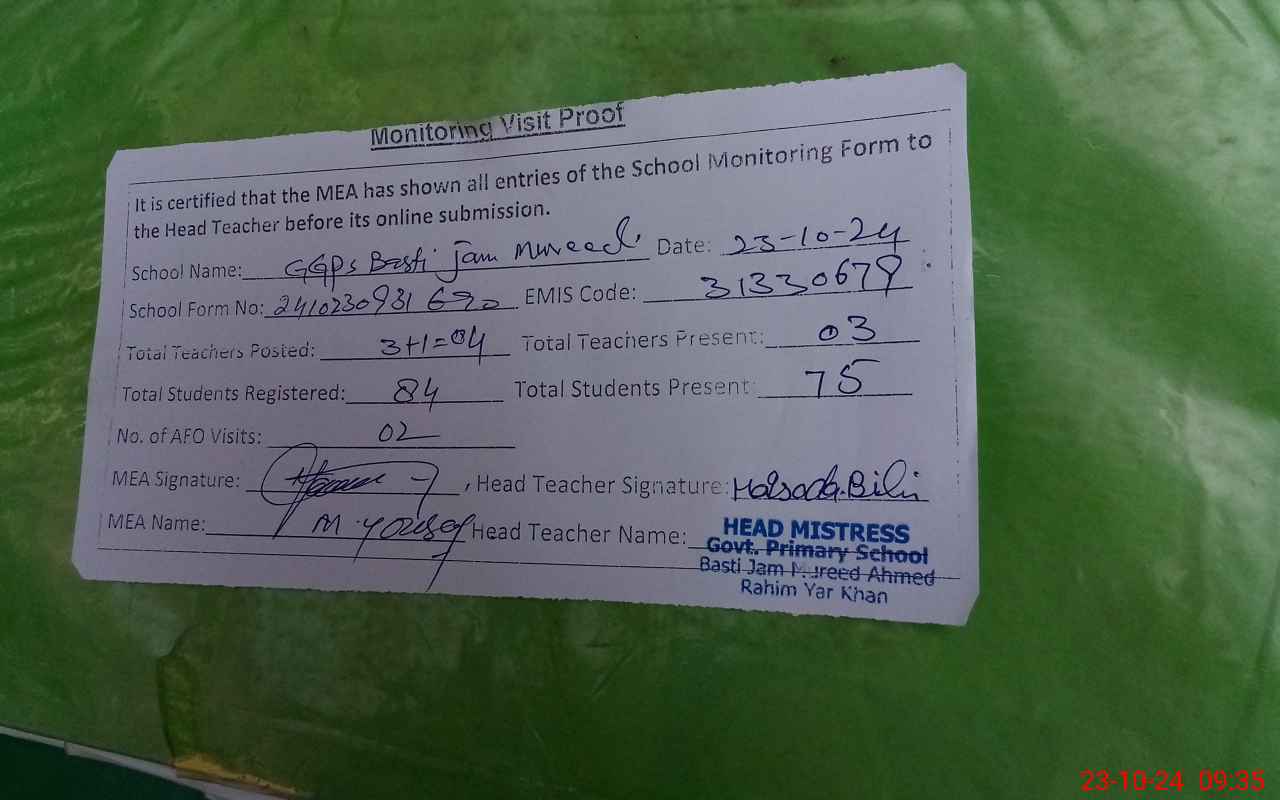 Monitoring Visit Proof
It is certified that the MEA has shown all entries of the School Monitoring Form to
the Head Teacher before its online submission.
School Name: GGPS Basti Jam Mureed Date: 23-10-24
School Form No: 2410230931690 EMIS Code: 31330679
Total Teachers Posted: 3+1=04 Total Teachers Present: 03
Total Students Registered: 84 Total Students Present: 75
No. of AFO Visits: 02
MEA Signature: , Head Teacher Signature: Bibi
MEA Name: M. Yousaf Head Teacher Name:
HEAD MISTRESS
Govt. Primary School
Basti Jam Mureed Ahmed
Rahim Yar Khan
23-10-24 09:35